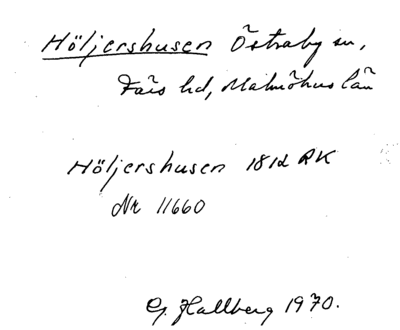 Höljershusen Östraby sn,
Färs hd, Malmöhus län
Höljershusen 1812 RK
Nr 11660
G. Hallberg 1970.